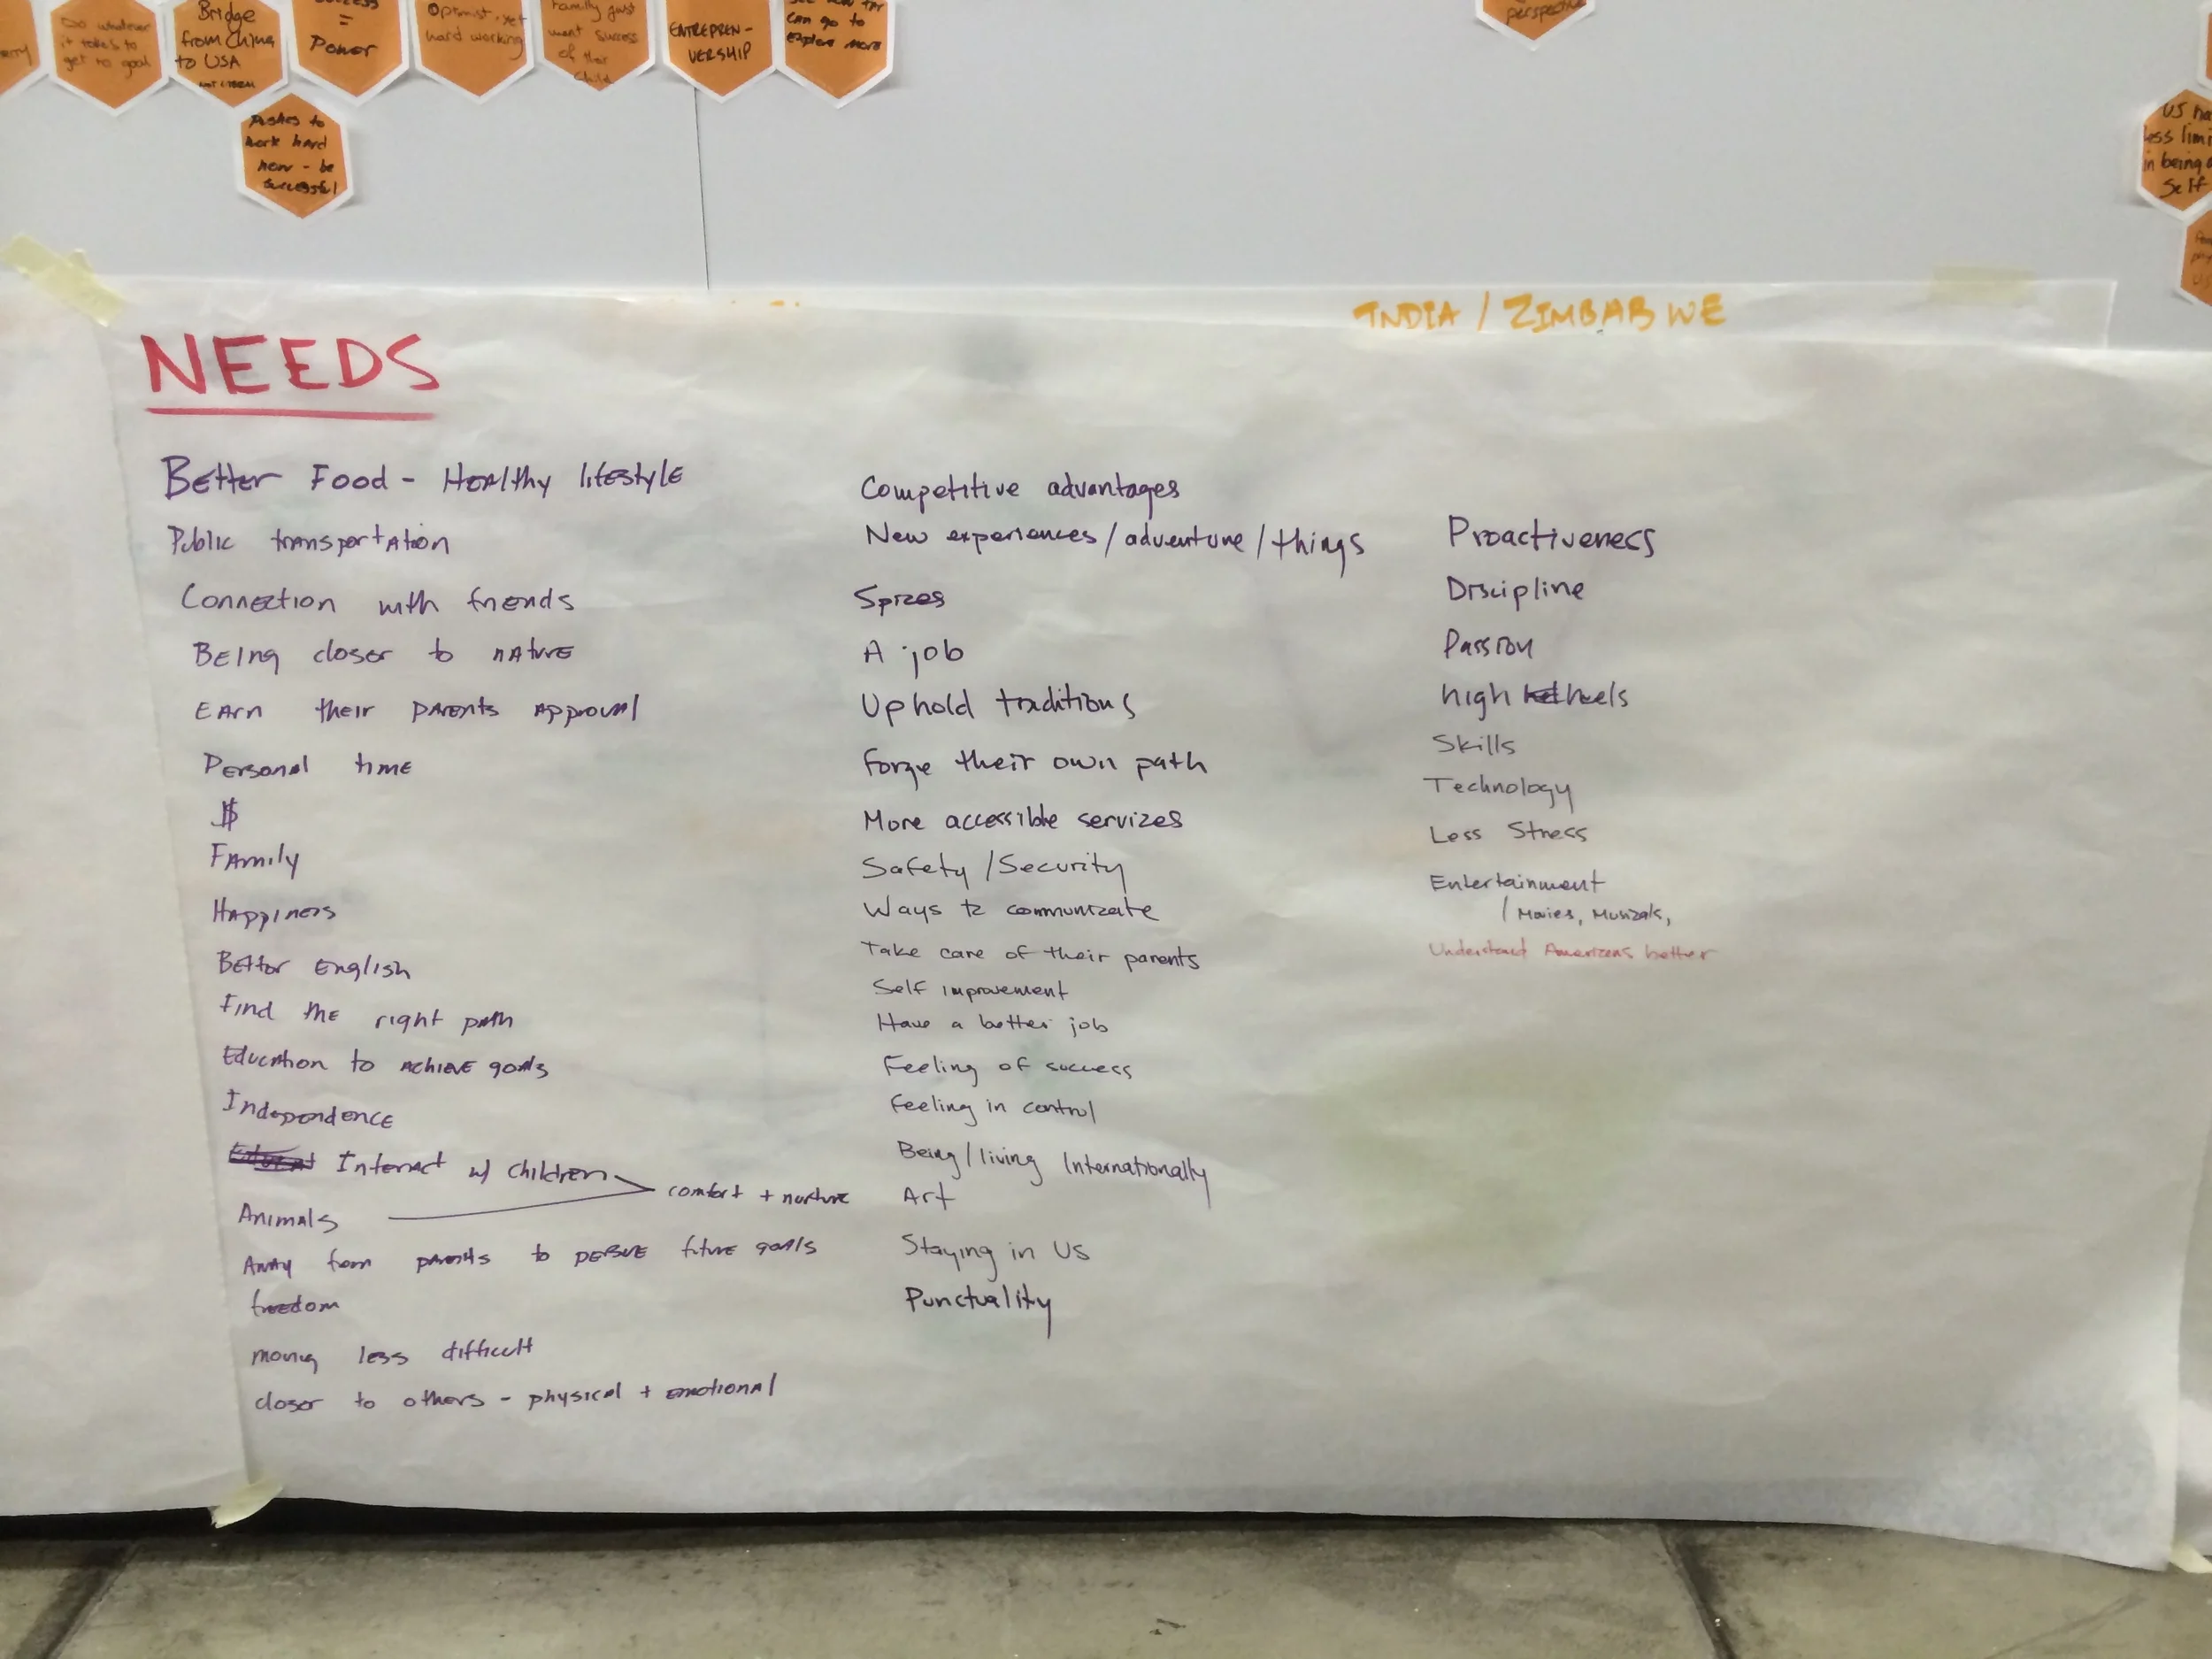 Do whatever
it takes to
get to goal
Bridge
from China
to USA
NOT LITERAL
=
Power
Optimist, yet
hard working
Family just
want success
of their
child
ENTREPREN-
VERSHIP
can go to
explore more
perspective
Pushes to
work hard
now - be
successful
US ha
less limi
in being
Self
INDIA / ZIMBABWE
NEEDS
Better Food - Healthy lifestyle
Public transportation
Connection with friends
Being closer to nature
Earn their parents approval
Personal time
$
Family
Happiness
Better English
Find the right path
Education to achieve goals
Independence
Interact w/ children
comfort + nurture
Animals
Away from parents to persue future goals
freedom
moving less difficult
closer to others - physical + emotional
Competitive advantages
New experiences / adventure / things
Spices
A job
Uphold traditions
Forge their own path
More accessible services
Safety / Security
Ways to communicate
Take care of their parents
Self improvement
Have a better job
Feeling of success
Feeling in control
Being / living Internationally
Art
Staying in US
Punctuality
Proactiveness
Discipline
Passion
high heels
Skills
Technology
Less Stress
Entertainment
/ Movies, Musicals,
Understand Americans better